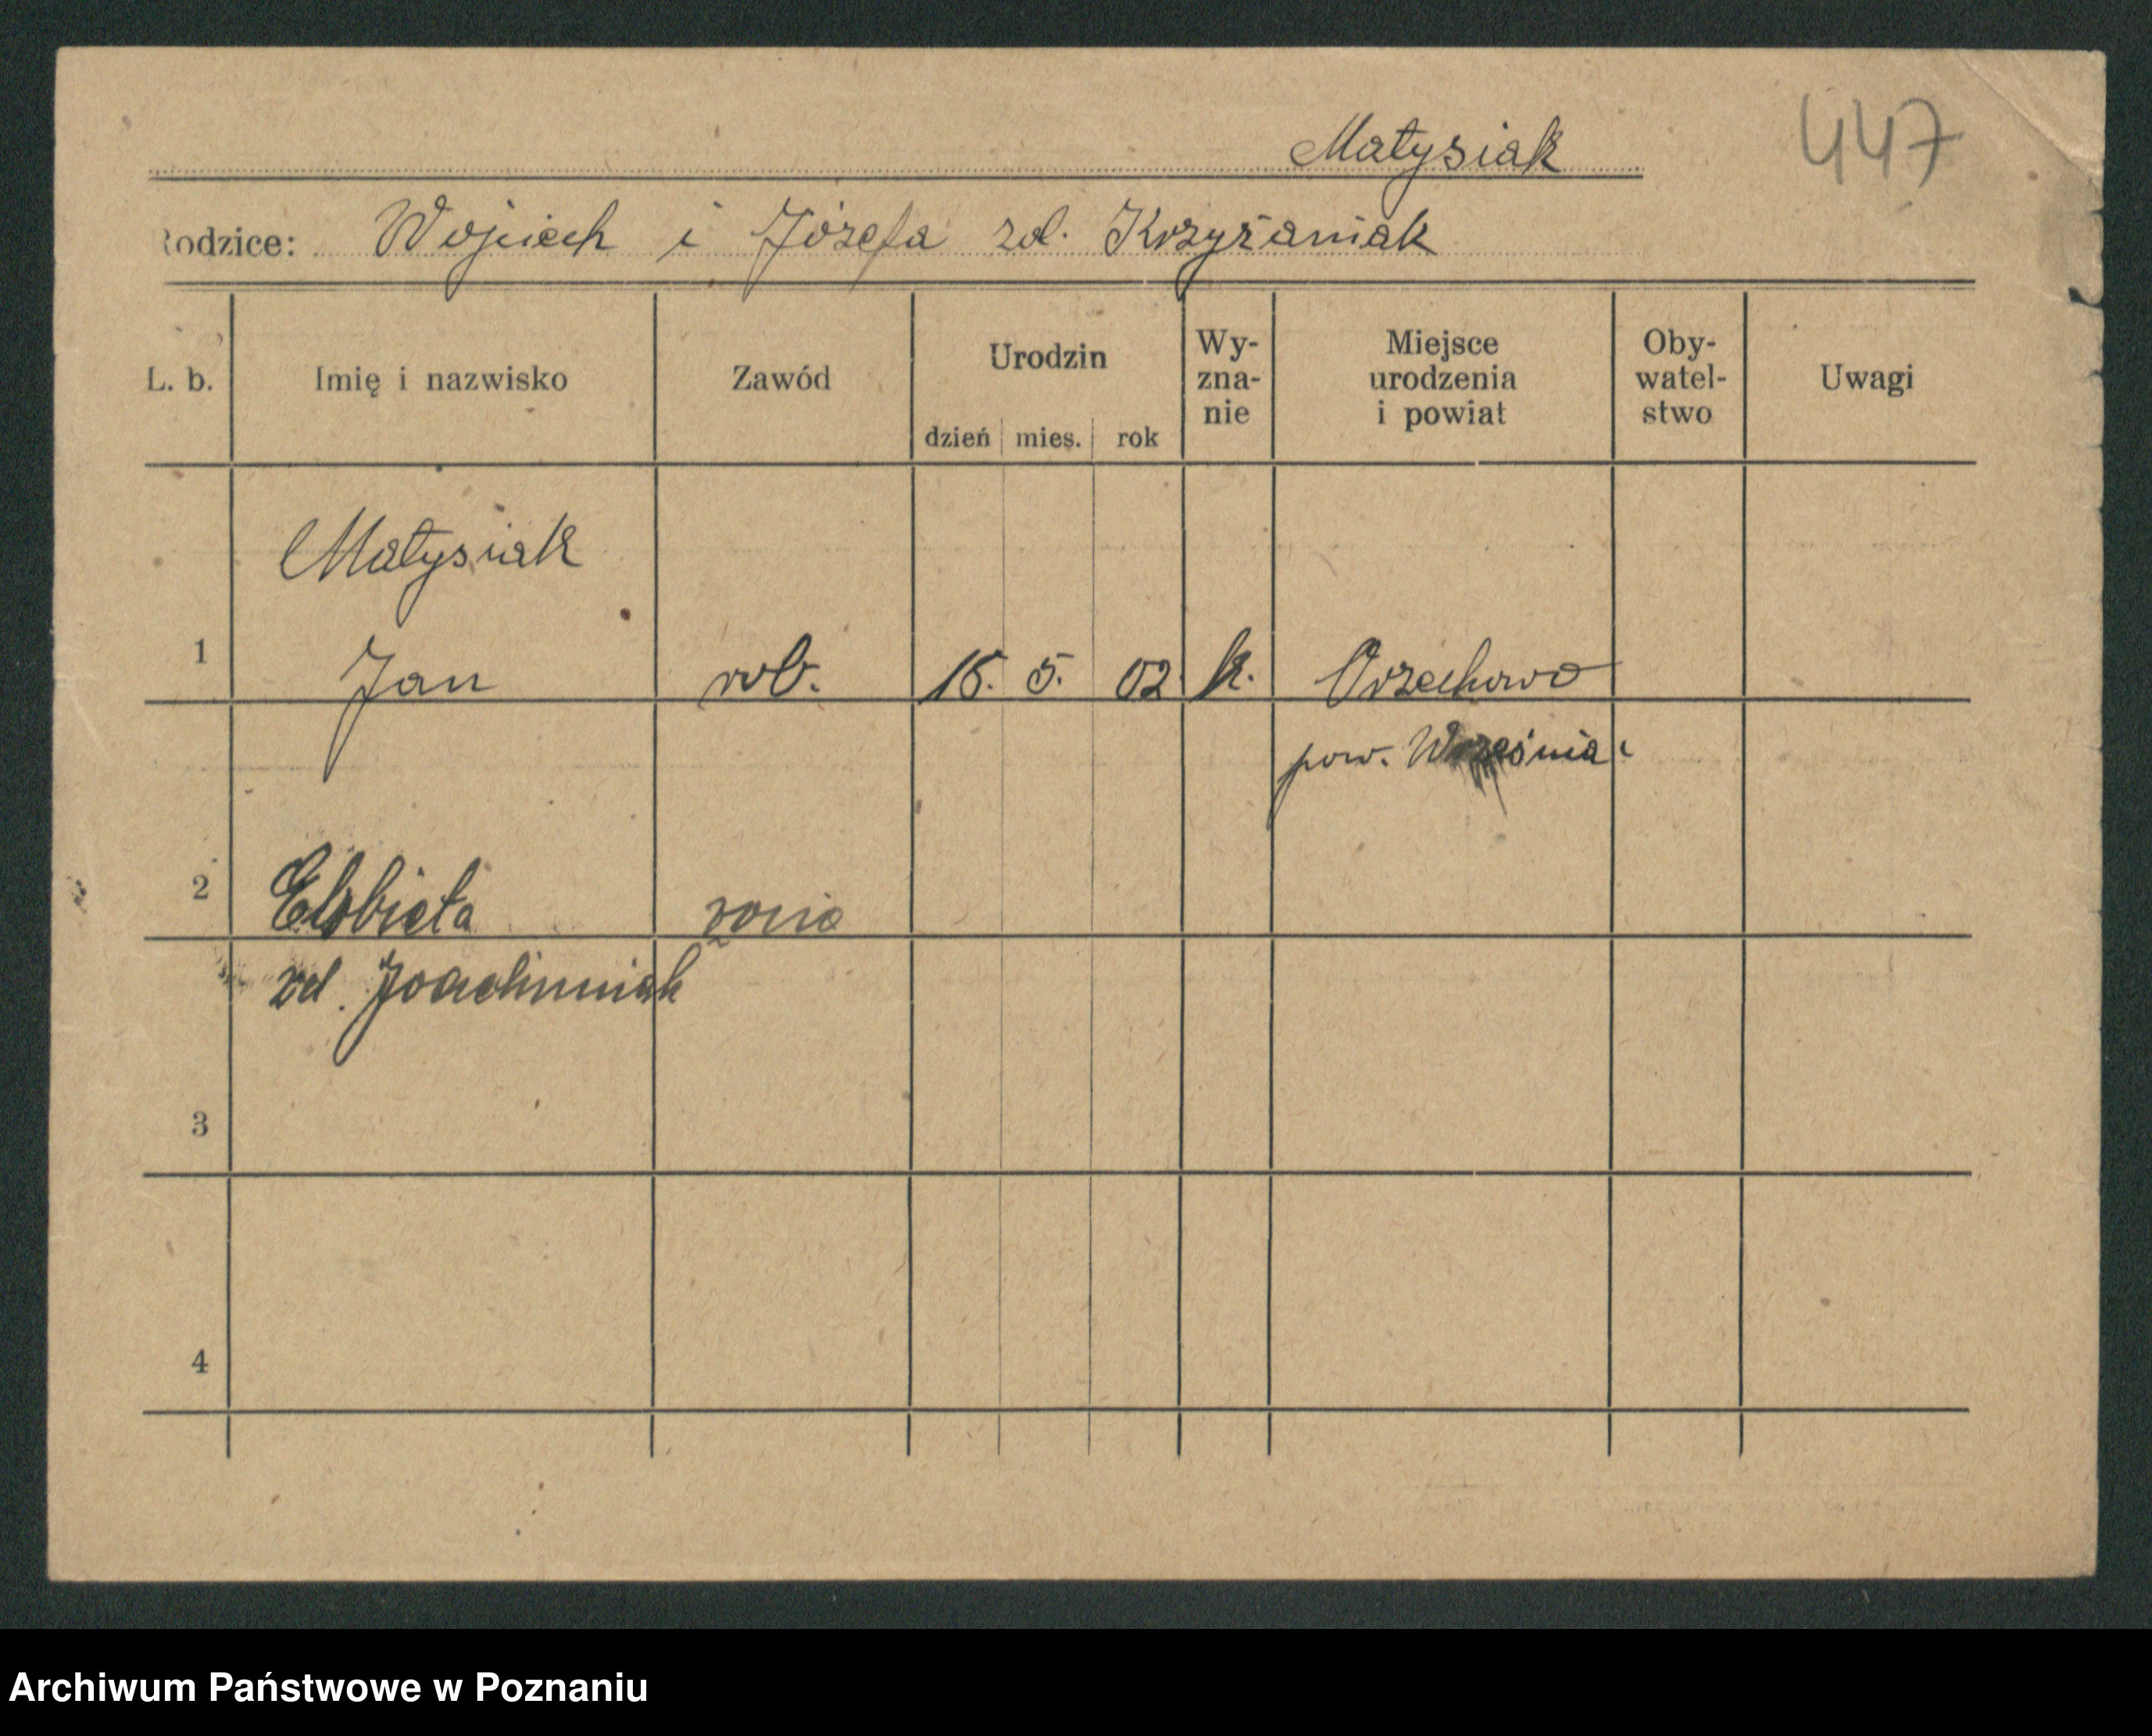 447
Matysiak
Rodzice: Wojciech i Józefa zd. Krzyżaniak
L. b. Imię i nazwisko Zawód Urodzin dzień mies. rok Wy-zna-nie Miejsce urodzenia i powiat Oby-watel-stwo Uwagi
Matysiak
1 Jan rob. 15. 5. 02 k. Orzechowo
pow. Września
2 Elżbieta żona
zd. Joachimiak
3
4
Archiwum Państwowe w Poznaniu